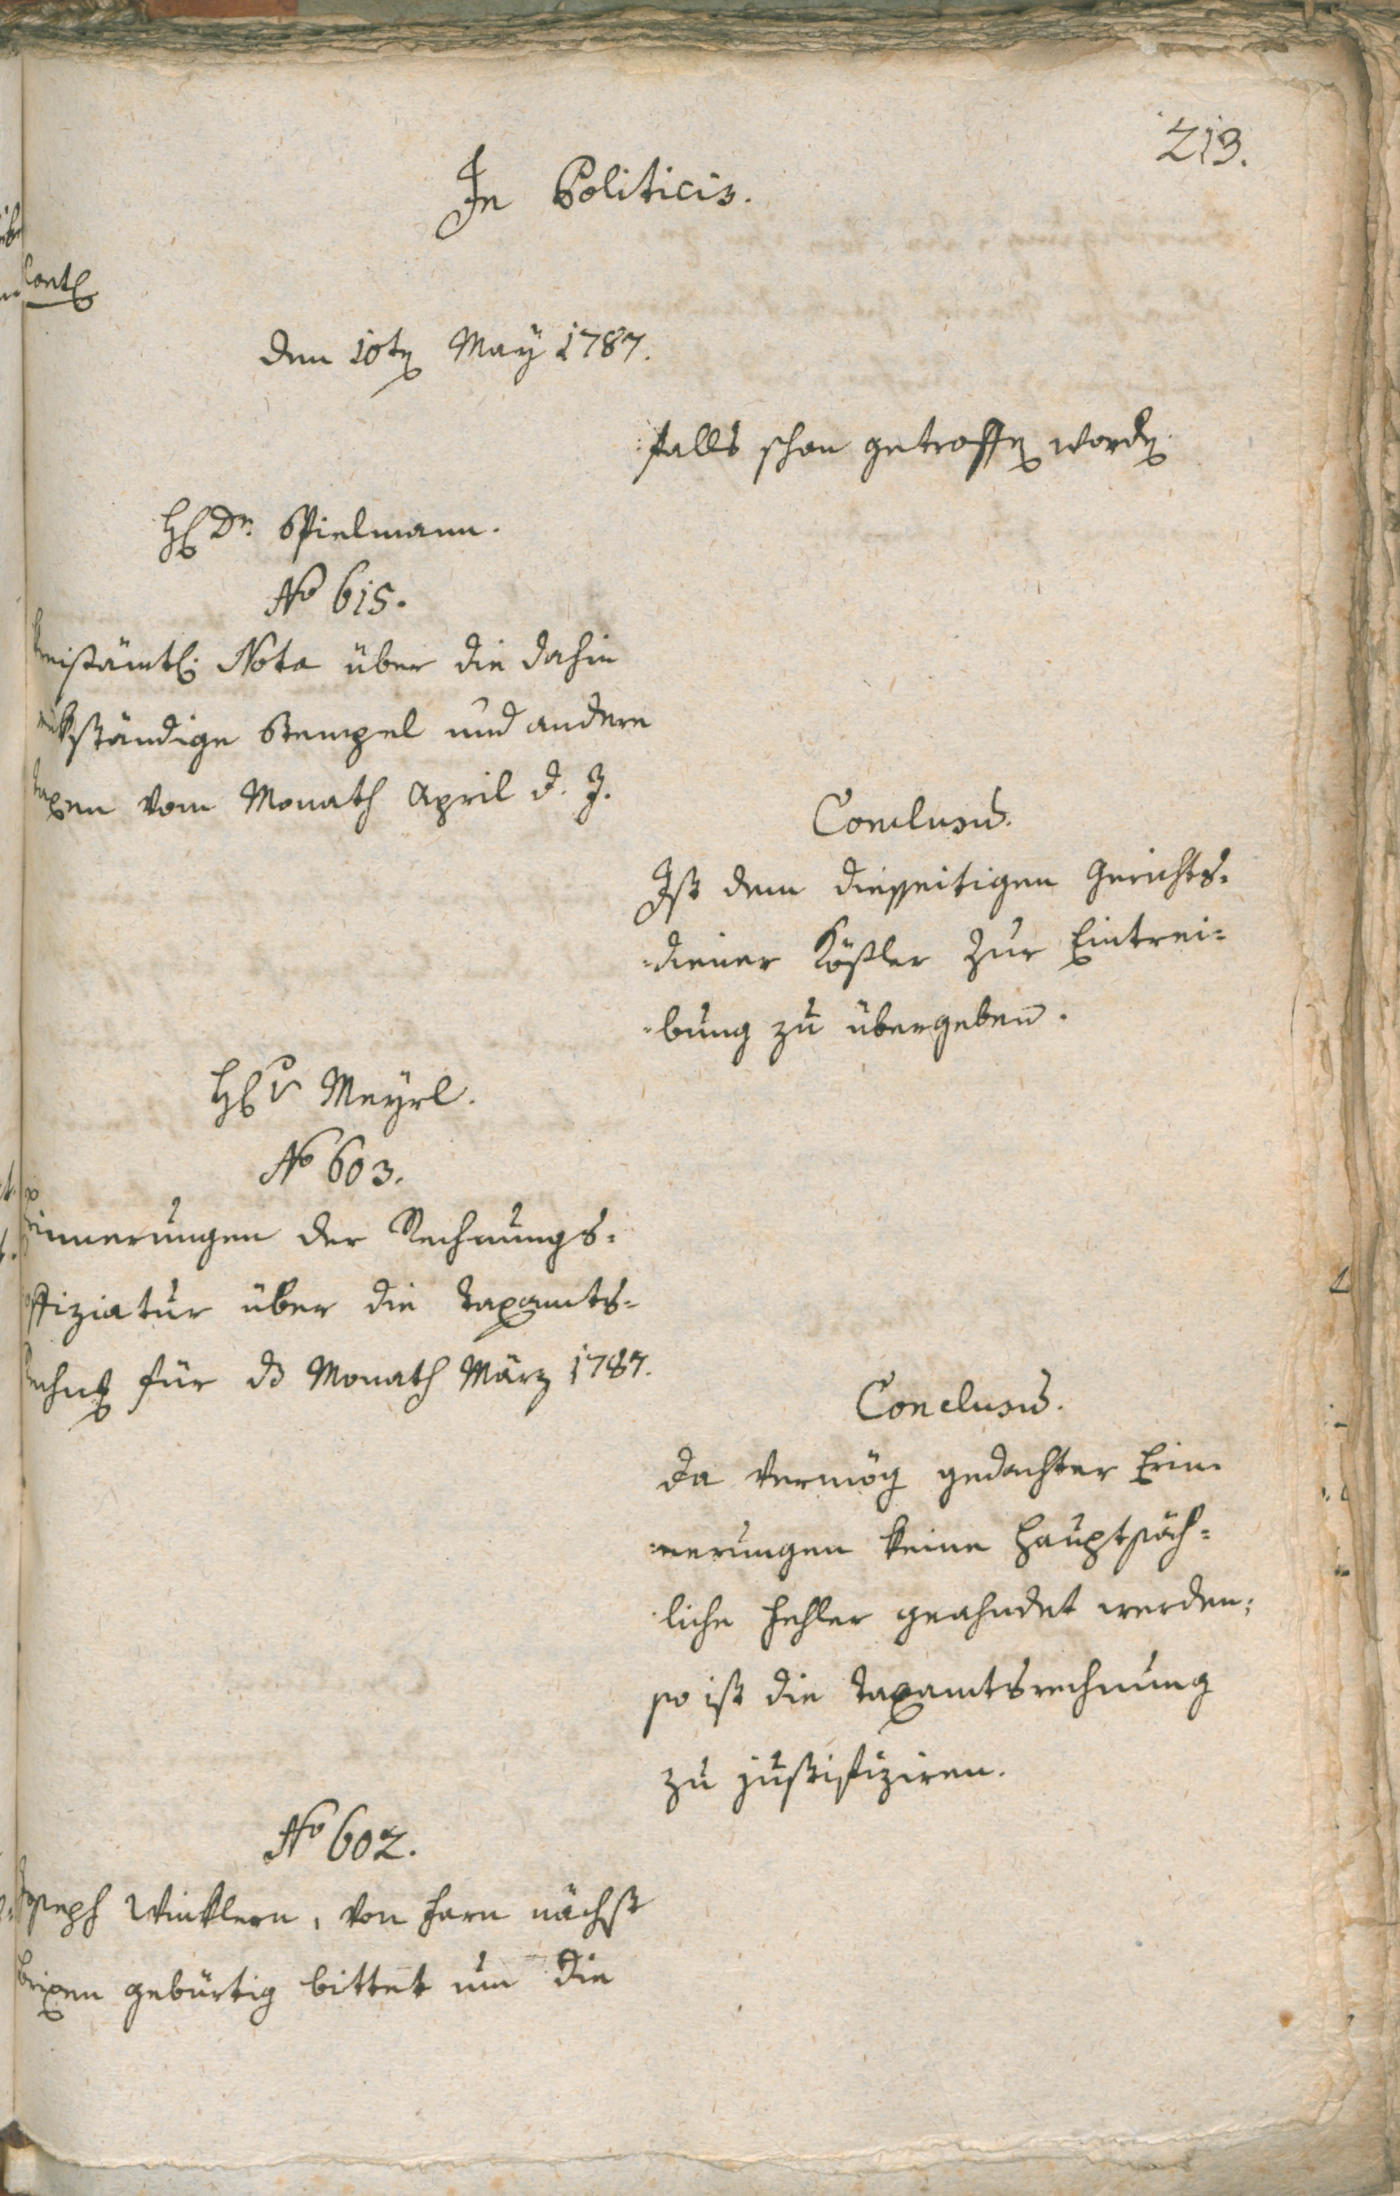 213.
In Politicis.
Cont
den 10t May 1787.
falls schon getroffen worden
H Dr. Spielmann.
No 615.
Kreisämtl. Nota über die dahin
rückständige Stempel und andere
Taxen vom Monath April d. J.
Conclusum.
Ist dem diesseitigen Gerichts-
diener Kößler zur Eintrei-
bung zu übergeben.
H v Meyrl.
No 603.
Erinnerungen der Rechnungs-
offiziatur über die Taxamts-
Rechng für das Monath März 1787.
Conclusum.
Da vermög gedachter Erin-
nerungen keine hauptsäch-
liche Fehler geahndet werden;
so ist die Taxamtsrechnung
zu justifiziren.
No 602.
Joseph Winklern, von Harn nächst
Brixen gebürtig bittet um die